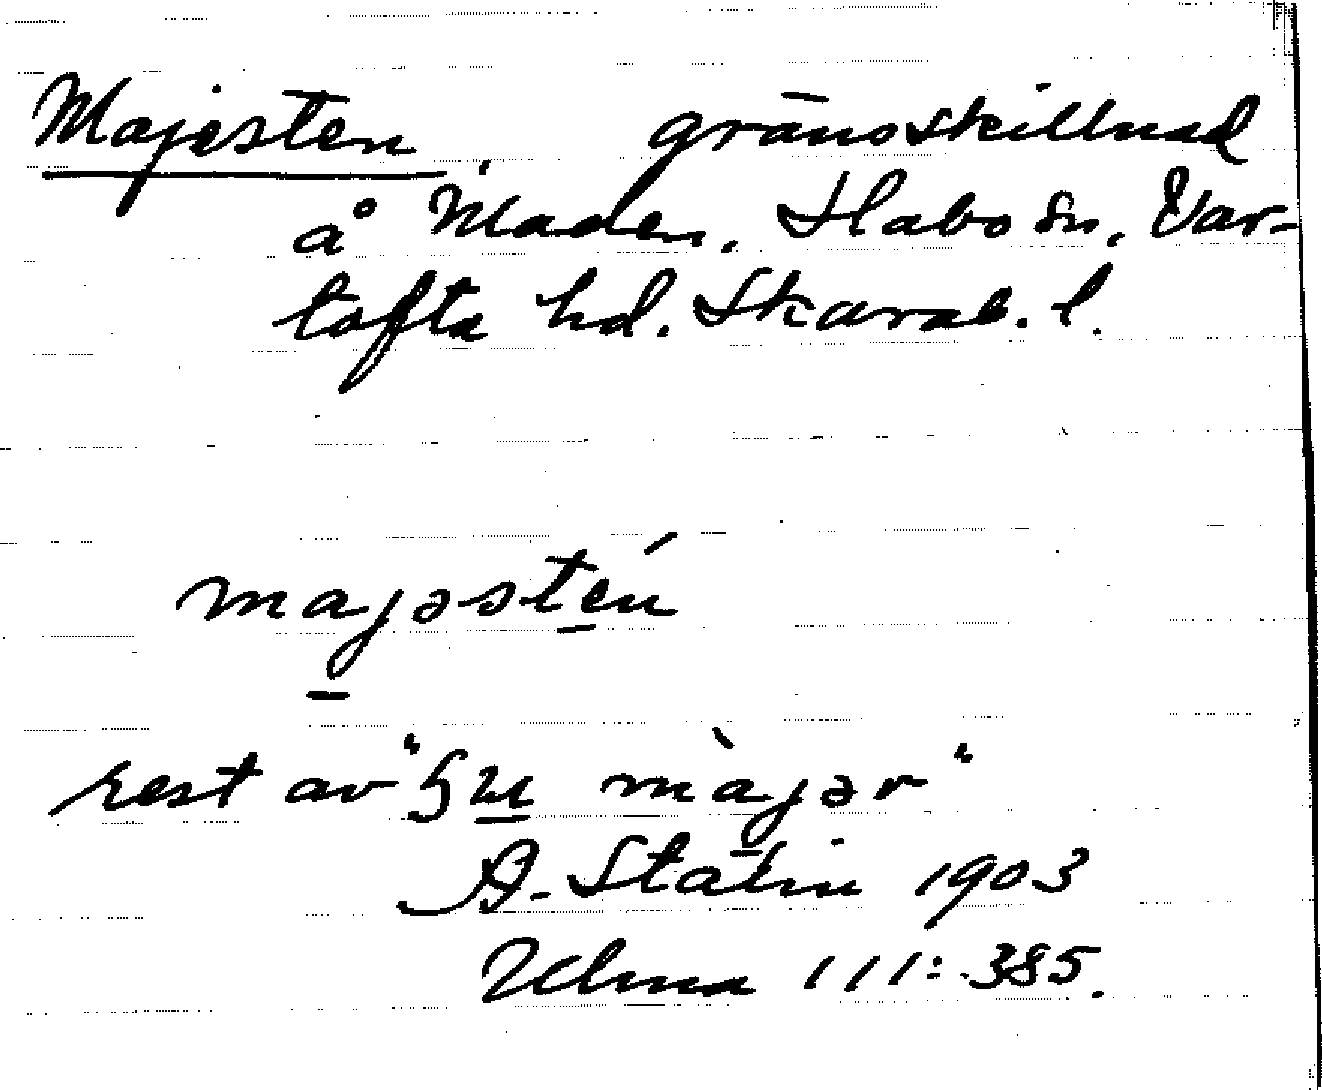 Majesten gränsskillnad
å Maden, Habo sn, Var-
tofta hd. Skarab. l.
majəstén
rest av "ɧu màjər"
A. Stalin 1903
Ulma 111:385.